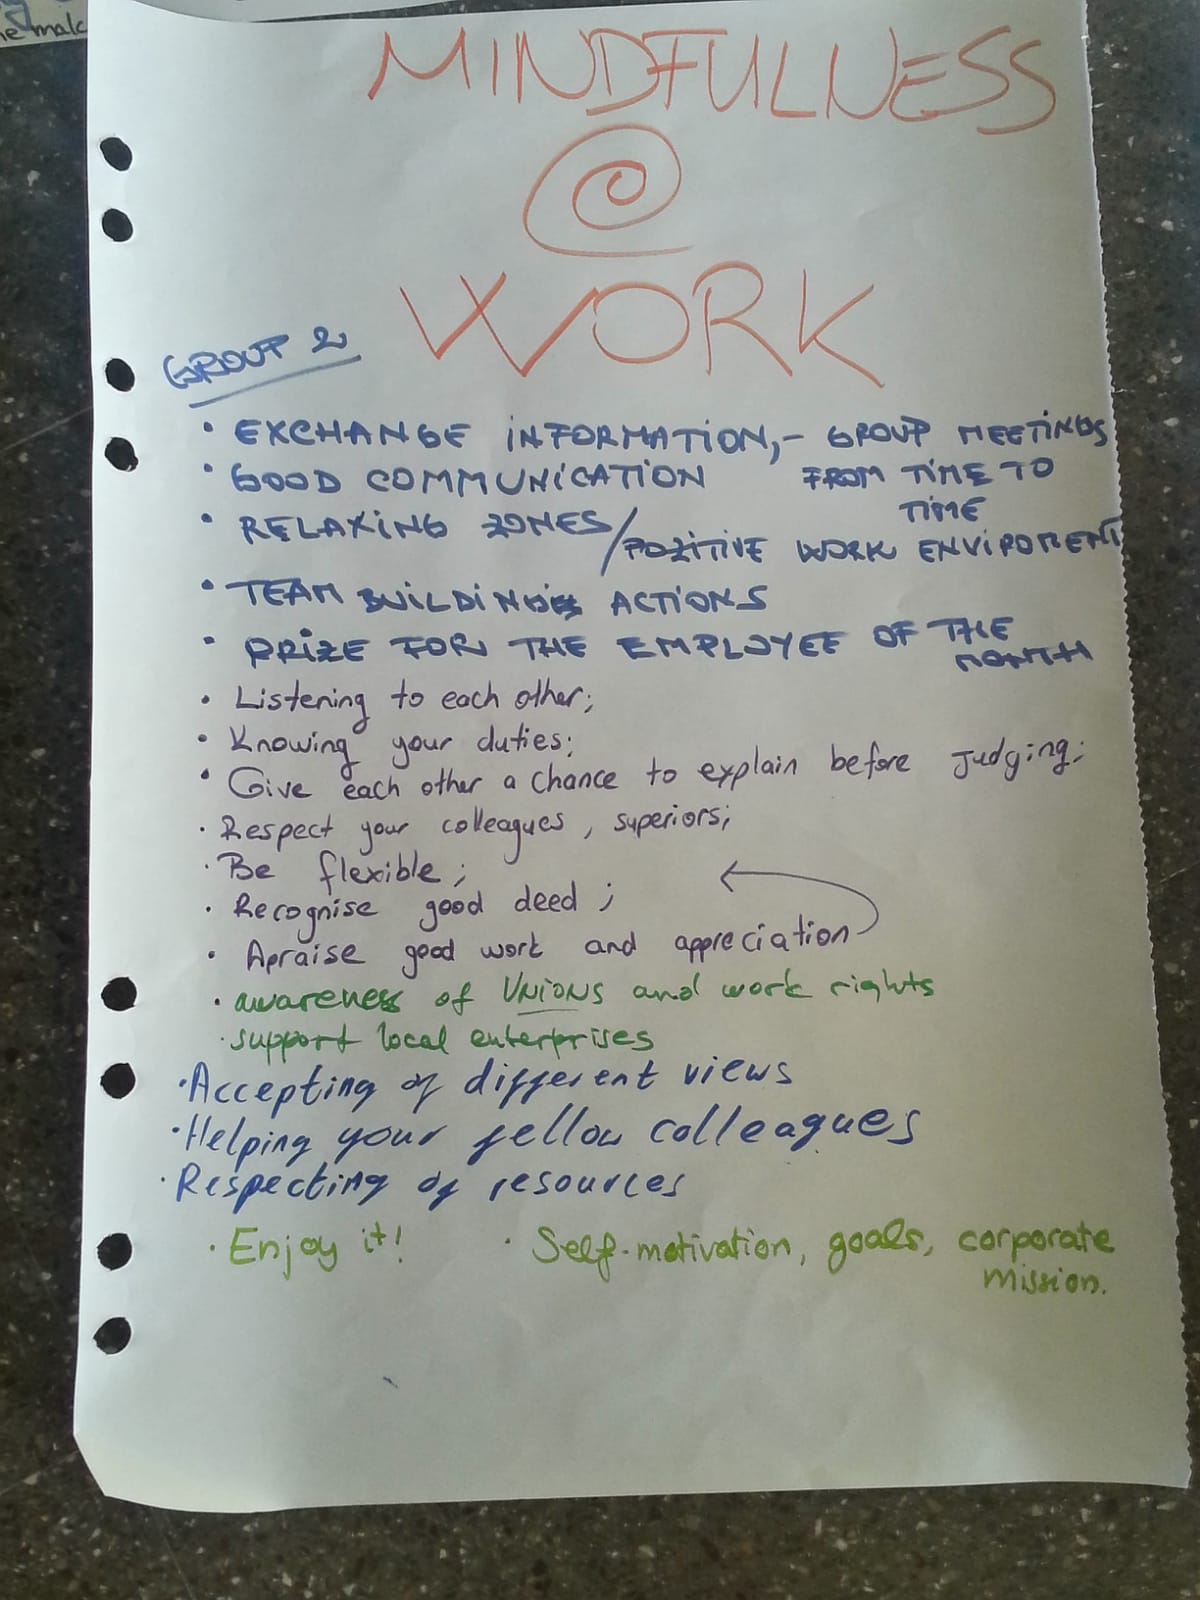 ne malc
MINDFULNESS
@
WORK
GROUP 2
• EXCHANGE INFORMATION, - GROUP MEETINGS
FROM TIME TO
TIME
• GOOD COMMUNICATION
• RELAXING ZONES / POZITIVE WORK ENVIROMENT
• TEAM BUILDING ACTIONS
• PRIZE FOR THE EMPLOYEE OF THE
MONTH
• Listening to each other;
• Knowing your duties;
• Give each other a chance to explain before judging;
• Respect your colleagues, superiors;
• Be flexible;
• Recognise good deed;
• Apraise good work and appreciation
• awareness of UNIONS and work rights
• support local enterprises
• Accepting of different views
• Helping your fellow colleagues
• Respecting of resources
• Enjoy it! • Self-motivation, goals, corporate
mission.